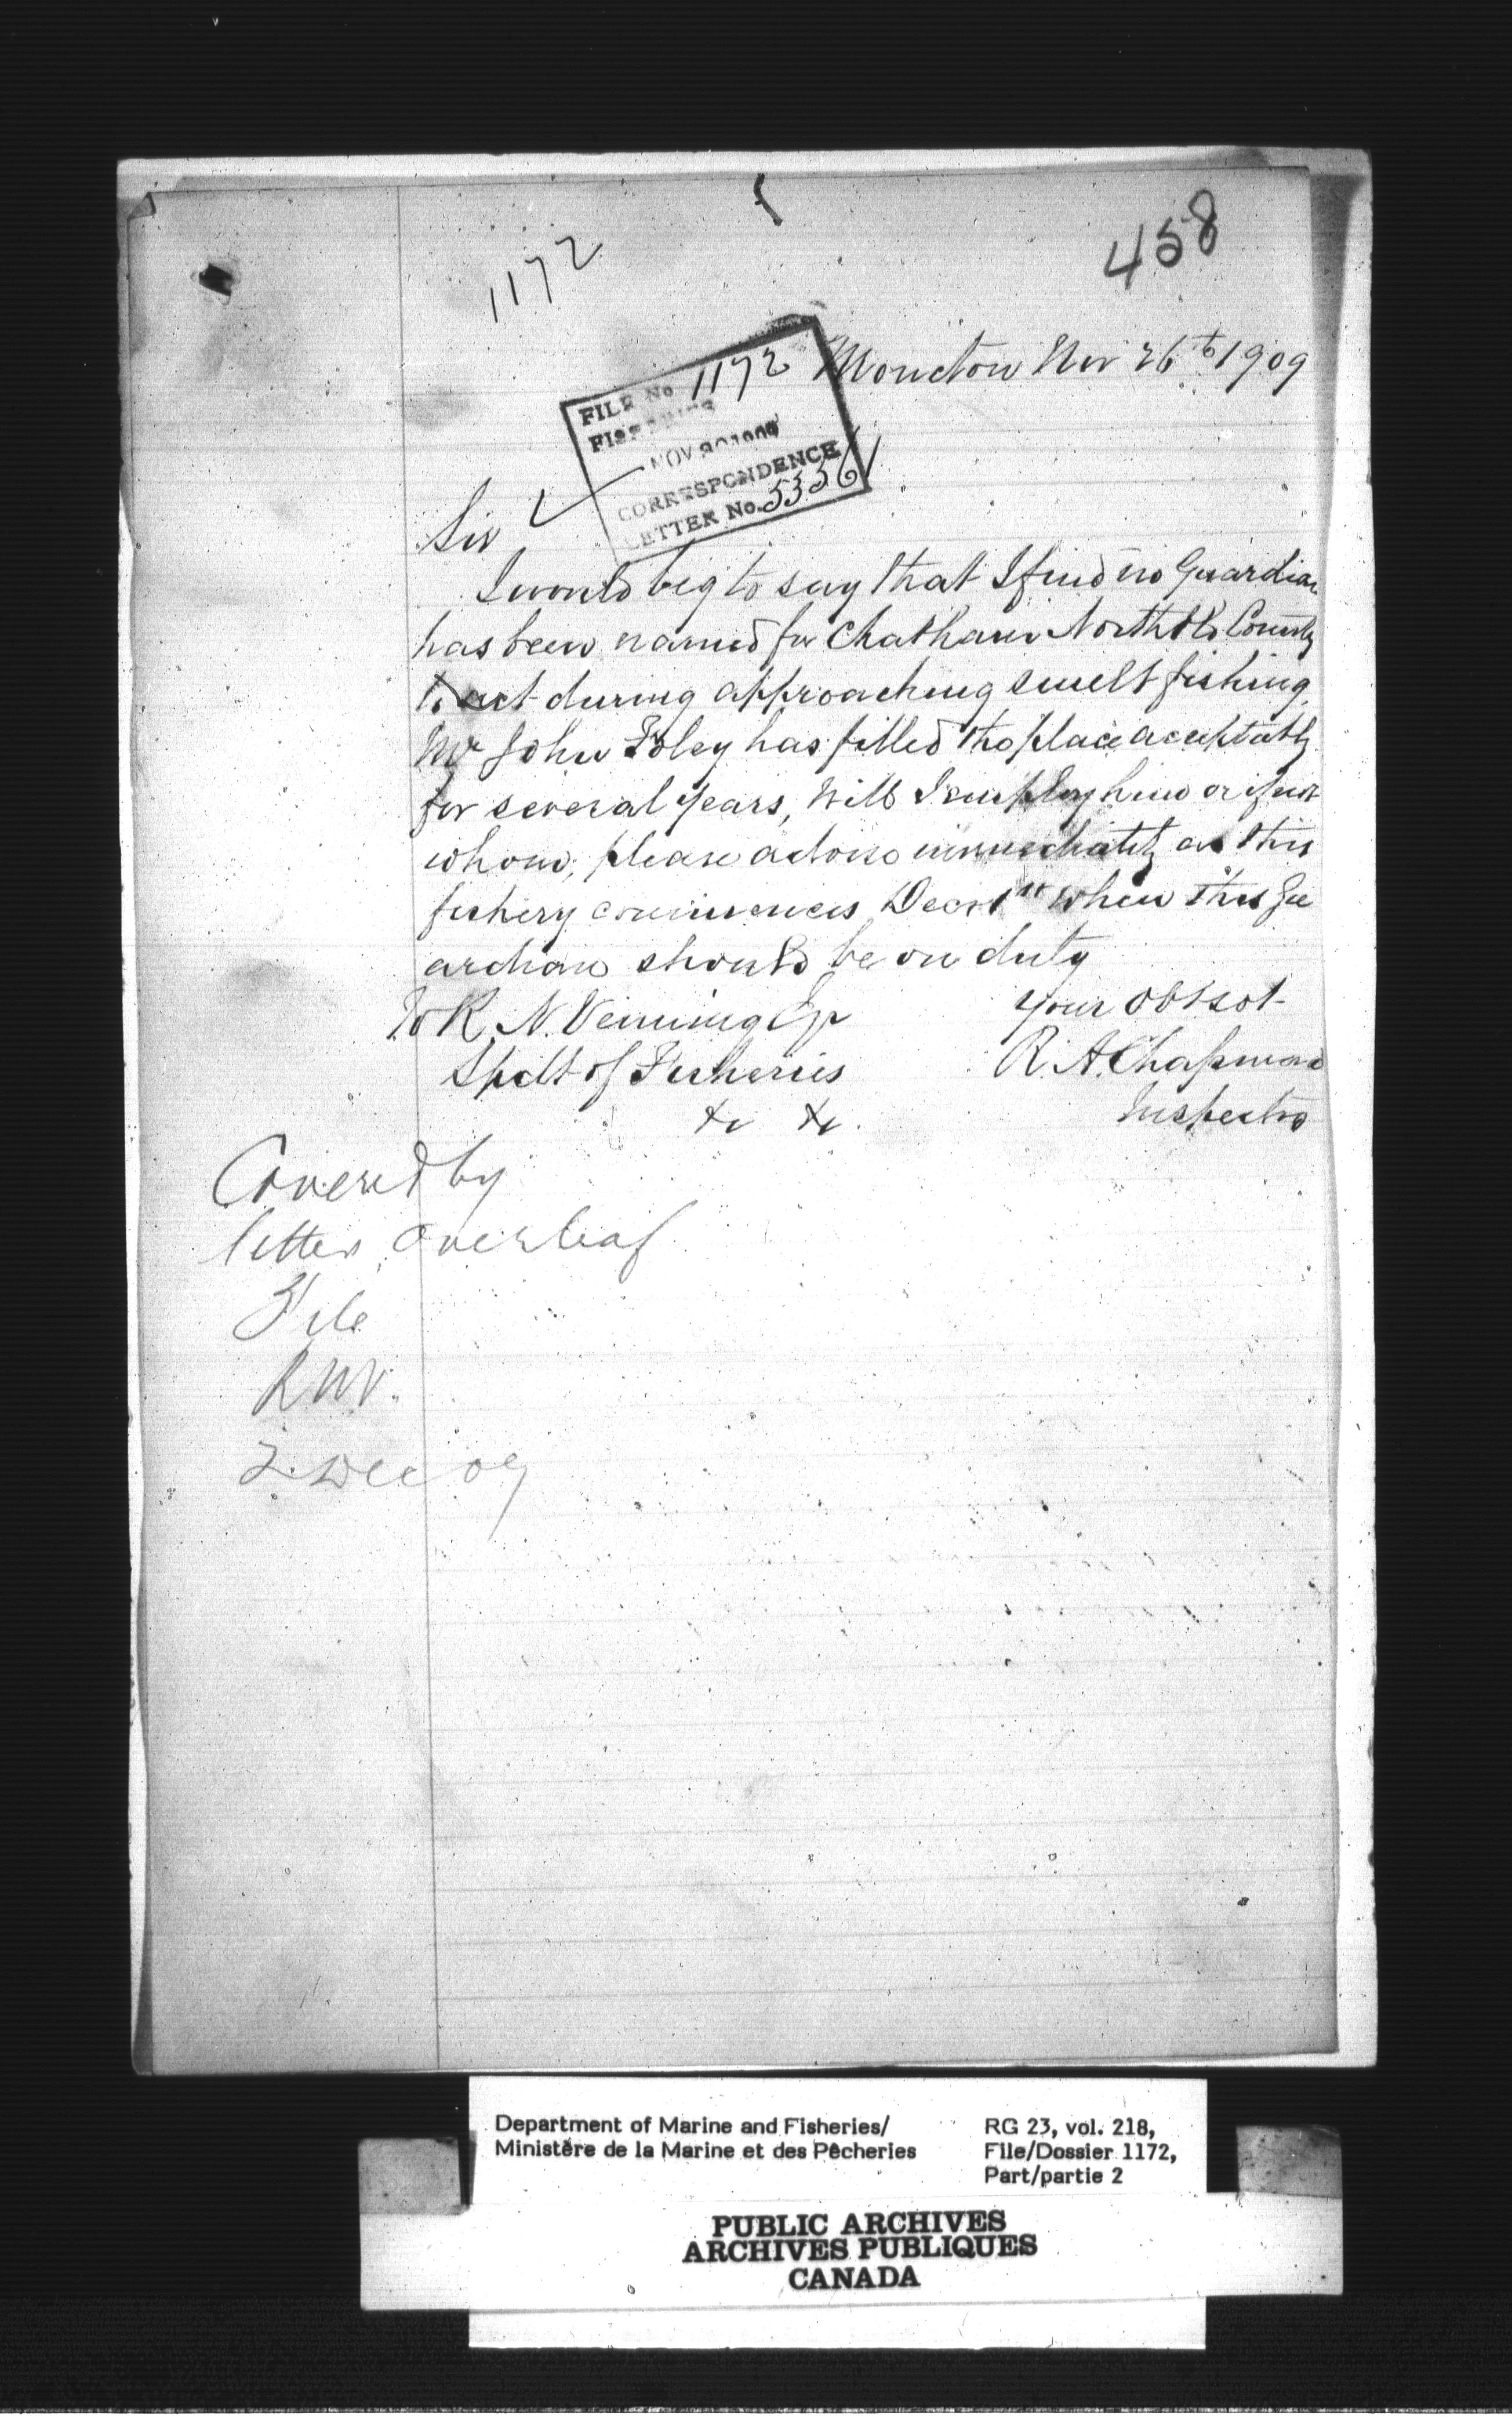 458
1172
Moncton Nov 26th 1909
FILE No 1172
FISHERIES
NOV 30 1909
CORRESPONDENCE
LETTER No. 53561
Sir
I would beg to say that I find no Guardian
has been named for Chatham North'd Co County
to act during approaching smelt fishing.
Mr John Foley has filled the place acceptably
for several years, Will I employ him or if not
whom, please advise immediately as this
fishery commences Decr 1st when this Gu
ardian should be on duty
To R. N. Venning Esqr
Your obt sevt
Spdt of Fisheries
R. A. Chapman
&c &c.
Inspector
Covered by
letter overleaf
File
RNV.
2 Dec 09
Department of Marine and Fisheries/
Ministère de la Marine et des Pêcheries
RG 23, vol. 218,
File/Dossier 1172,
Part/partie 2
PUBLIC ARCHIVES
ARCHIVES PUBLIQUES
CANADA